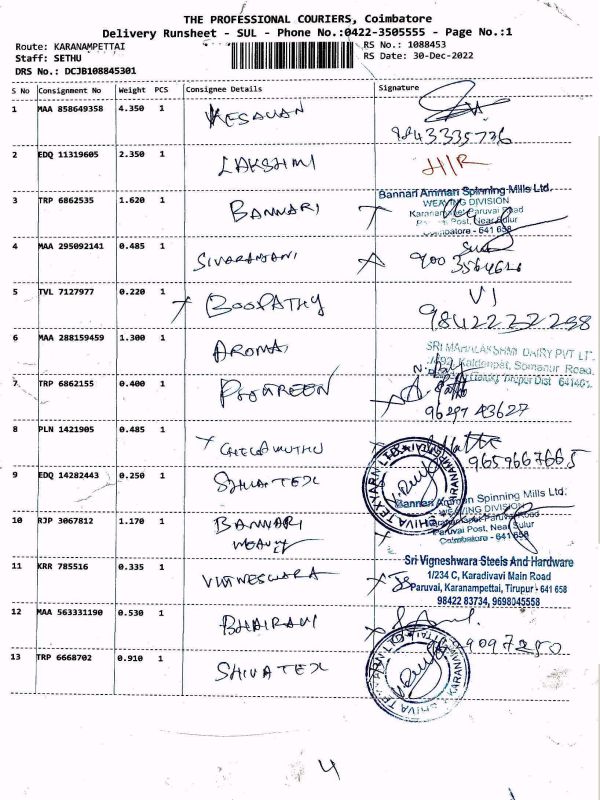 THE PROFESSIONAL COURIERS, Coimbatore
Delivery Runsheet - SUL - Phone No.:0422-3505555 - Page No.:1
Route: KARANAMPETTAI
RS No.: 1088453
Staff: SETHU
RS Date: 30-Dec-2022
DRS No.: DCJB108845301
S No Consignment No Weight PCS Consignee Details Signature
1 MAA 858649358 4.350 1 KESAVAN
9843335736
2 EDQ 11319605 2.350 1 LAKSHMI H/R
3 TRP 6862535 1.620 1 BANNARI
Bannari Amman Spinning Mills Ltd.
WEAVING DIVISION
Karanampet Paruvai Road
Post, Near Sulur
- 641 658
4 MAA 295092141 0.485 1 SIVARANJANI
5 TVL 7127977 0.220 1 BOOPATHY VJ
9842222298
6 MAA 288159459 1.300 1 AROMA
SRI MAHALAKSHMI DAIRY PVT LT
Kaldenpet, Somanur Road,
Tirupur Dist 641401
7 TRP 6862155 0.400 1
9629743627
8 PLN 1421905 0.485 1
9659667665
9 EDQ 14282443 0.250 1 SHIVATEX
SHIVA TEXYARN LTD KARANAMPETTAI
10 RJP 3067812 1.170 1 BANNARI
Bannari Amman Spinning Mills Ltd.
WEAVING DIVISION
Paruvai Road
Paruvai Post, Near Sulur
Coimbatore - 641 658
11 KRR 785516 0.335 1 VIGNESWARA
Sri Vigneshwara Steels And Hardware
1/234 C, Karadivavi Main Road
Paruvai, Karanampettai, Tirupur - 641 658
98422 83734, 9698045558
12 MAA 563331190 0.530 1 BHAIRAVI
13 TRP 6668702 0.910 1 SHIVATEX
SHIVA TEXYARN LTD KARANAMPETTAI
4